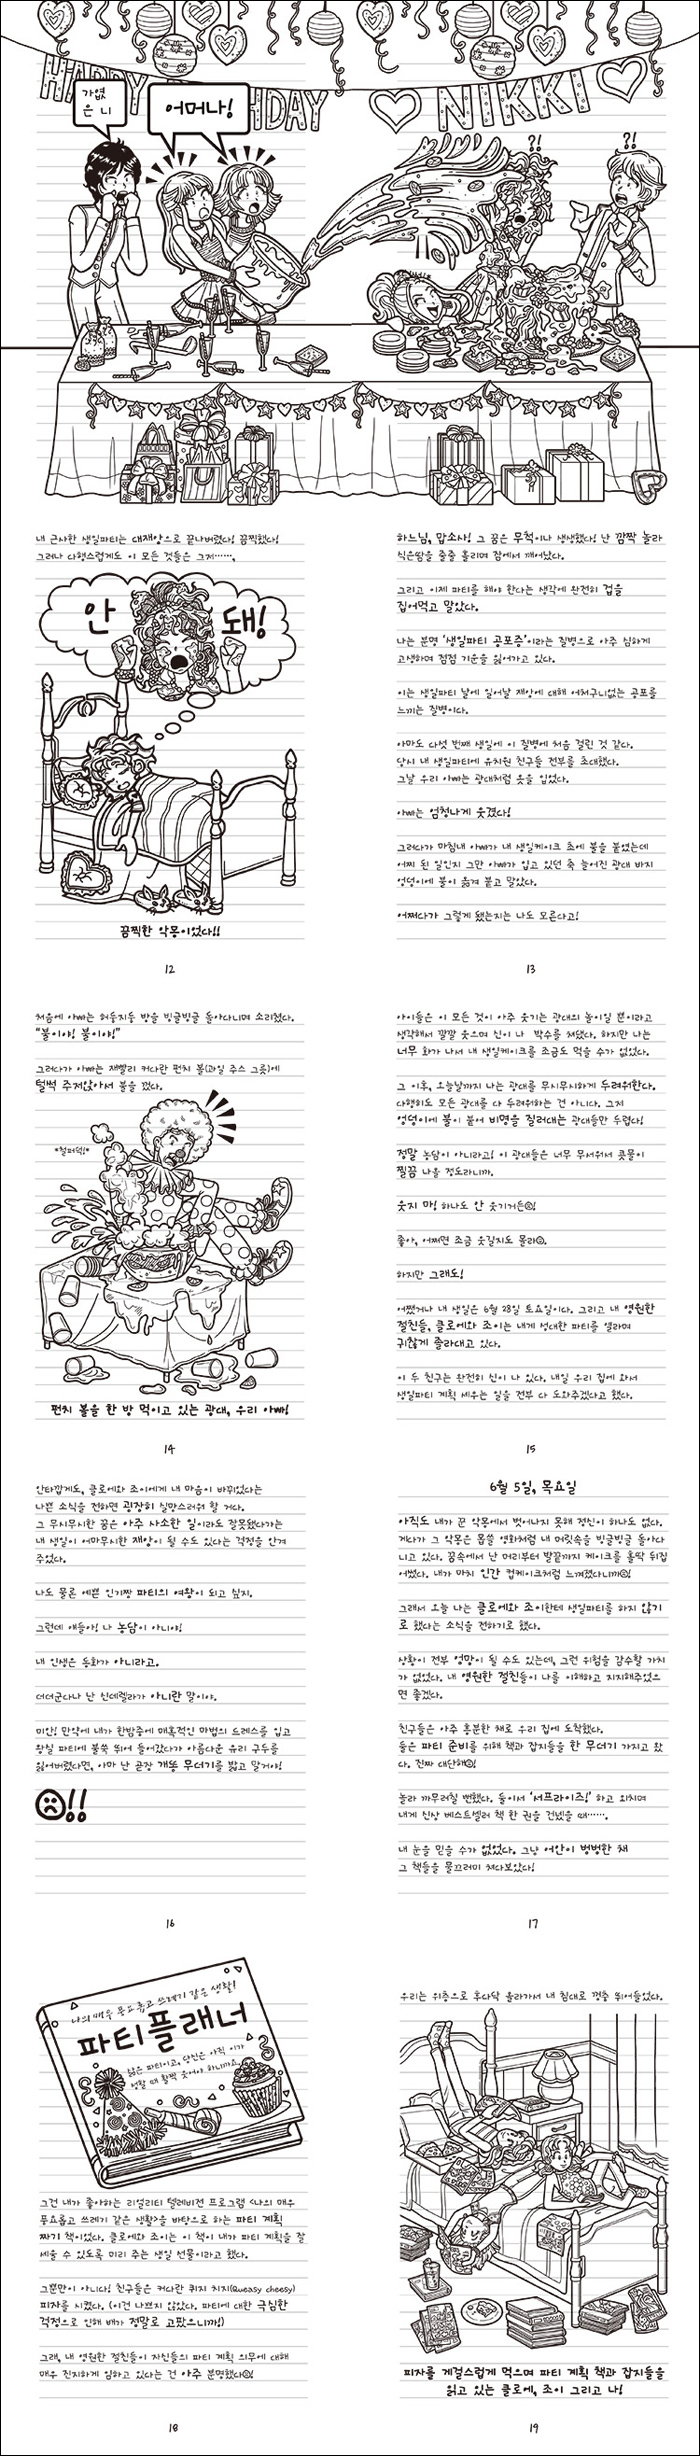 HAPPY BIRTHDAY NIKKI
가엾
은 니
어머나!
?!
?!
내 근사한 생일파티는 대재앙으로 끝나버렸다! 끔찍했다!
그러나 다행스럽게도 이 모든 것들은 그저……,
안 돼!
끔찍한 악몽이었다!!
12
하느님, 맙소사! 그 꿈은 무척이나 생생했다! 난 깜짝 놀라
식은땀을 줄줄 흘리며 잠에서 깨어났다.
그리고 이제 파티를 해야 한다는 생각에 완전히 겁을
집어먹고 말았다.
나는 분명 '생일파티 공포증'이라는 질병으로 아주 심하게
고생하며 점점 기운을 잃어가고 있다.
이는 생일파티 날에 일어날 재앙에 대해 어처구니없는 공포를
느끼는 질병이다.
아마도 다섯 번째 생일에 이 질병에 처음 걸린 것 같다.
당시 내 생일파티에 유치원 친구들 전부를 초대했다.
그날 우리 아빠는 광대처럼 옷을 입었다.
아빠는 엄청나게 웃겼다!
그러다가 마침내 아빠가 내 생일케이크 초에 불을 붙였는데
어찌 된 일인지 그만 아빠가 입고 있던 축 늘어진 광대 바지
엉덩이에 불이 옮겨 붙고 말았다.
어쩌다가 그렇게 됐는지는 나도 모른다고!
13
처음에 아빠는 허둥지둥 방을 빙글빙글 돌아다니며 소리쳤다.
"불이야! 불이야!"
그러다가 아빠는 재빨리 커다란 펀치 볼(과일 주스 그릇)에
털썩 주저앉아서 불을 껐다.
*철퍼덕!*
펀치 볼을 한 방 먹이고 있는 광대, 우리 아빠!
14
아이들은 이 모든 것이 아주 웃기는 광대의 놀이일 뿐이라고
생각해서 깔깔 웃으며 신이 나 박수를 쳐댔다. 하지만 나는
너무 화가 나서 내 생일케이크를 조금도 먹을 수가 없었다.
그 이후, 오늘날까지 나는 광대를 무시무시하게 두려워한다.
다행히도 모든 광대를 다 두려워하는 건 아니다. 그저
엉덩이에 불이 붙어 비명을 질러대는 광대들만 두렵다!
정말 농담이 아니라고! 이 광대들은 너무 무서워서 콧물이
찔끔 나올 정도라니까.
웃지 마! 하나도 안 웃기거든☹!
좋아, 어쩌면 조금 웃길지도 몰라☺.
하지만 그래도!
어쨌거나 내 생일은 6월 28일 토요일이다. 그리고 내 영원한
절친들, 클로에와 조이는 내게 성대한 파티를 열라며
귀찮게 졸라대고 있다.
이 두 친구는 완전히 신이 나 있다. 내일 우리 집에 와서
생일파티 계획 세우는 일을 전부 다 도와주겠다고 했다.
15
안타깝게도, 클로에와 조이에게 내 마음이 바뀌었다는
나쁜 소식을 전하면 굉장히 실망스러워 할 거다.
그 무시무시한 꿈은 아주 사소한 일이라도 잘못됐다가는
내 생일이 어마무시한 재앙이 될 수도 있다는 걱정을 안겨
주었다.
나도 물론 예쁜 인기짱 파티의 여왕이 되고 싶지.
그런데 얘들아! 나 농담이 아니야!
내 인생은 동화가 아니라고.
더더군다나 난 신데렐라가 아니란 말이야.
미안! 만약에 내가 한밤중에 매혹적인 마법의 드레스를 입고
왕실 파티에 불쑥 뛰어 들어갔다가 아름다운 유리 구두를
잃어버렸다면, 아마 난 곧장 개똥 무더기를 밟고 말거야!
☹!!
16
6월 5일, 목요일
아직도 내가 꾼 악몽에서 벗어나지 못해 정신이 하나도 없다.
게다가 그 악몽은 몹쓸 영화처럼 내 머릿속을 빙글빙글 돌아다
니고 있다. 꿈속에서 난 머리부터 발끝까지 케이크를 홀딱 뒤집
어썼다. 내가 마치 인간 컵케이크처럼 느껴졌다니까☹!
그래서 오늘 나는 클로에와 조이한테 생일파티를 하지 않기
로 했다는 소식을 전하기로 했다.
상황이 전부 엉망이 될 수도 있는데, 그런 위험을 감수할 가치
가 없었다. 내 영원한 절친들이 나를 이해하고 지지해주었으
면 좋겠다.
친구들은 아주 흥분한 채로 우리 집에 도착했다.
둘은 파티 준비를 위해 책과 잡지들을 한 무더기 가지고 왔
다. 진짜 대단해☺!
놀라 까무러칠 뻔했다. 둘이서 '서프라이즈!' 하고 외치며
내게 신상 베스트셀러 책 한 권을 건넸을 때…….
내 눈을 믿을 수가 없었다. 그냥 어안이 벙벙한 채
그 책들을 물끄러미 쳐다보았다!
17
나의 매우 풍요롭고 쓰레기 같은 생활!
파티플래너
삶은 파티이고, 당신은 아직 이가
성할 때 활짝 웃어야 하니까요
그건 내가 좋아하는 리얼리티 텔레비전 프로그램 <나의 매우
풍요롭고 쓰레기 같은 생활>을 바탕으로 하는 파티 계획
짜기 책이었다. 클로에와 조이는 이 책이 내가 파티 계획을 잘
세울 수 있도록 미리 주는 생일 선물이라고 했다.
그뿐만이 아니다! 친구들은 커다란 퀴지 치지(Queasy cheesy)
피자를 시켰다. (이건 나쁘지 않았다. 파티에 대한 극심한
걱정으로 인해 배가 정말로 고팠으니까!)
그래, 내 영원한 절친들이 자신들의 파티 계획 의무에 대해
매우 진지하게 임하고 있다는 건 아주 분명했다☺!
18
우리는 위층으로 후다닥 올라가서 내 침대로 껑충 뛰어들었다.
피자를 게걸스럽게 먹으며 파티 계획 책과 잡지들을
읽고 있는 클로에, 조이 그리고 나!
19